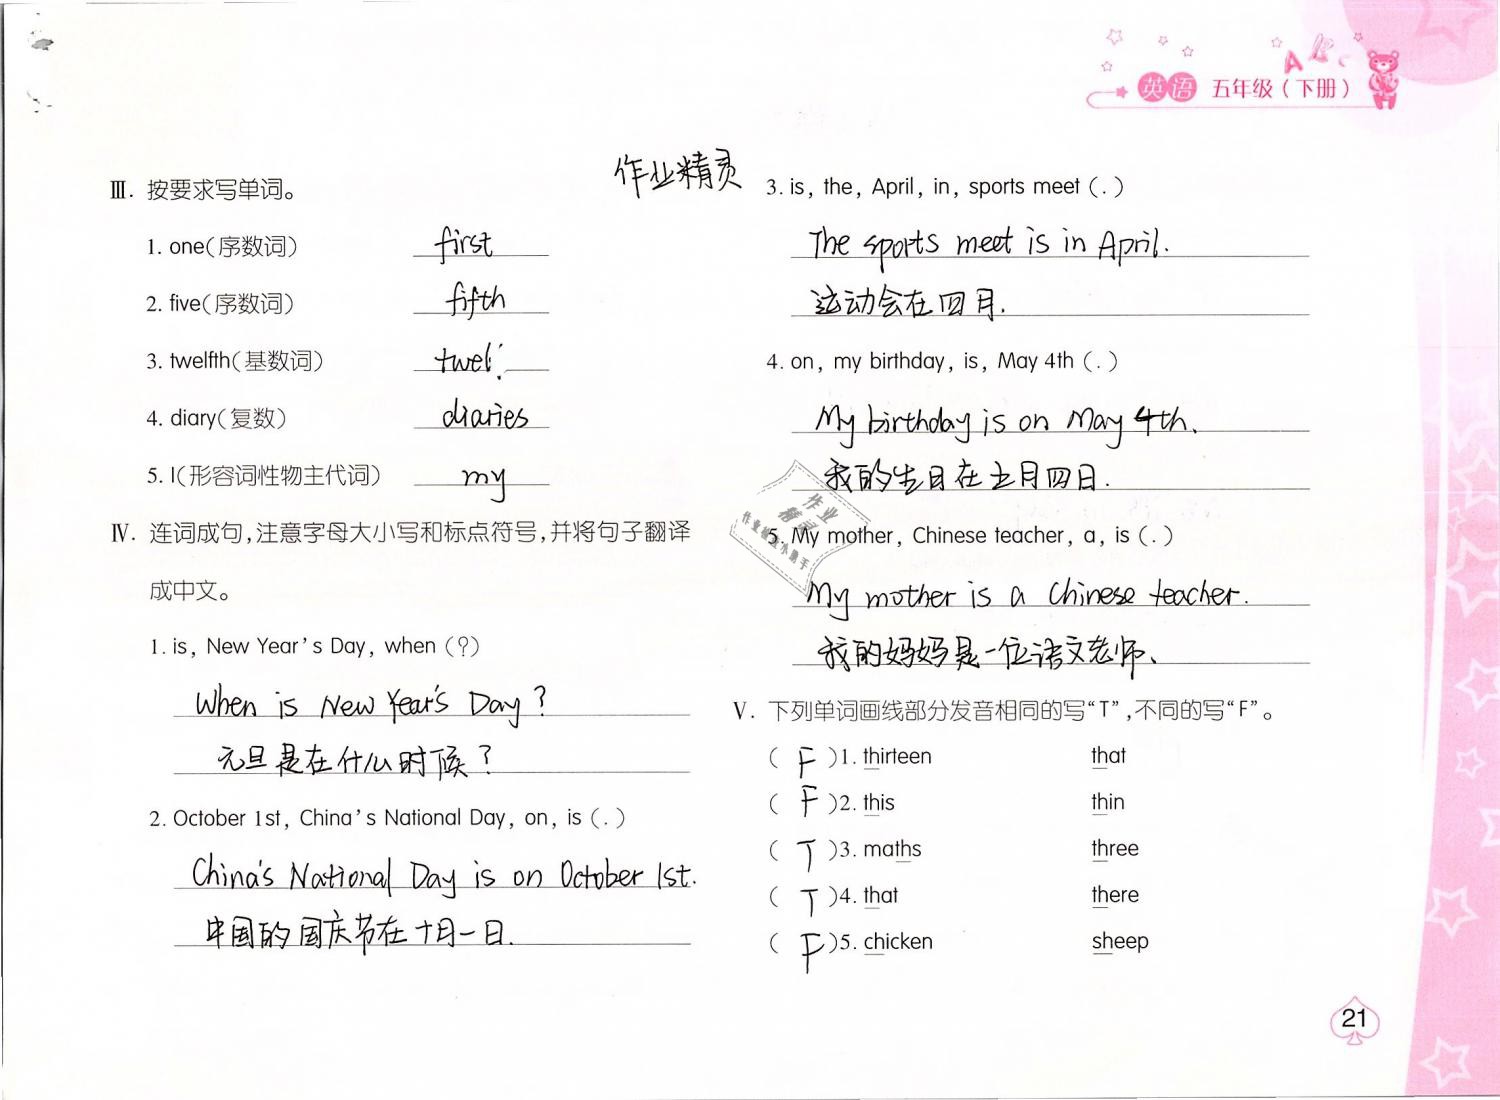 ABC
英语 五年级(下册)
作业精灵
Ⅲ. 按要求写单词。
1. one(序数词) first
2. five(序数词) fifth
3. twelfth(基数词)
4. diary(复数) diaries
5. I(形容词性物主代词) my
Ⅳ. 连词成句,注意字母大小写和标点符号,并将句子翻译
成中文。
1. is, New Year's Day, when (?)
When is New Year's Day?
元旦是在什么时候?
2. October 1st, China's National Day, on, is (.)
China's National Day is on October 1st.
中国的国庆节在十月一日.
3. is, the, April, in, sports meet (.)
The sports meet is in April.
运动会在四月.
4. on, my birthday, is, May 4th (.)
My birthday is on May 4th.
我的生日在五月四日.
作业
精灵
作业检查小助手
5. My mother, Chinese teacher, a, is (.)
My mother is a Chinese teacher.
我的妈妈是一位语文老师.
Ⅴ. 下列单词画线部分发音相同的写“T”,不同的写“F”。
( F )1. thirteen that
( F )2. this thin
( T )3. maths three
( T )4. that there
( F )5. chicken sheep
21